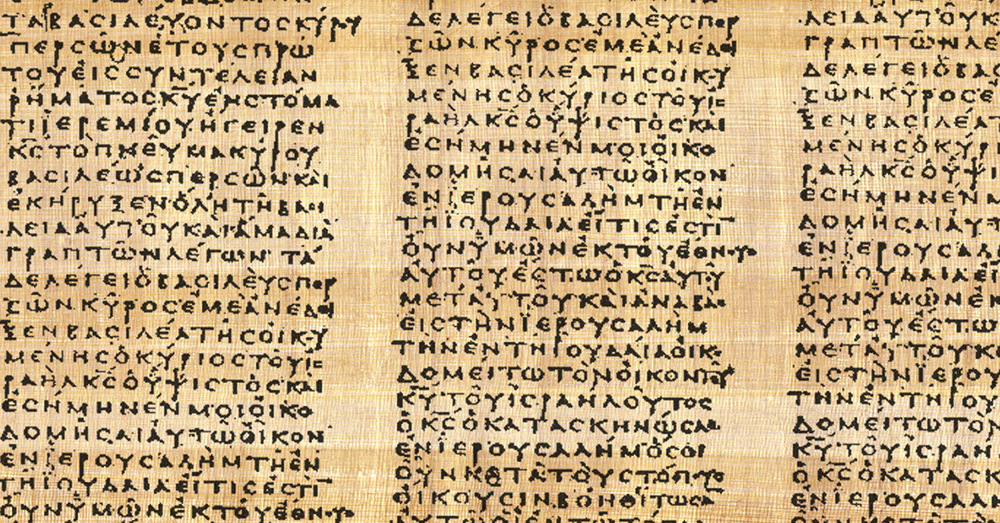 ΤΑΒΑϹΙΛΕΥΟΝΤΟϹΚΥΡΥ
ΠΕΡϹΩΝΕΤΟΥϹΠΡΩ
ΤΟΥΕΙϹϹΥΝΤΕΛΕΙΑΝ
ΡΗΜΑΤΟϹΚΥΕΝϹΤΟΜΑ
ΤΙΙΕΡΕΜΙΟΥΗΓΕΙΡΕΝ
ΚϹΤΟΠΝΕΥΜΑΚΥΡΟΥ
ΒΑϹΙΛΕΩϹΠΕΡϹΩΝΚΑΙ
ΕΚΗΡΥΞΕΝΟΛΗΤΗΒΑϹΙ
ΛΕΙΑΑΥΤΟΥΚΑΙΑΜΑΔΙΑ
ΓΡΑΠΤΩΝΛΕΓΩΝΤΑ
ΔΕΛΕΓΕΙΟΒΑϹΙΛΕΥϹΠΕΡ
ϹΩΝΚΥΡΟϹΕΜΕΑΝΕΔΕΙ
ΞΕΝΒΑϹΙΛΕΑΤΗϹΟΙΚΥ
ΜΕΝΗϹΟΚΥΡΙΟϹΤΟΥΙϹ
ΡΑΗΛΚϹΟΥΨΙϹΤΟϹΚΑΙ
ΕϹΗΜΗΝΕΝΜΟΙΟΙΚΟ
ΔΟΜΗϹΑΙΑΥΤΩΟΙΚΟΝ
ΕΝΙΕΡΟΥϹΑΛΗΜΤΗΕΝ
ΤΗΙΟΥΔΑΙΑΕΙΤΙϹΕϹΤΙ
ΟΥΝΥΜΩΝΕΚΤΟΥΕΘΝΟΥϹ
ΔΕΛΕΓΕΙΟΒΑϹΙΛΕΥϹΠΕΡ
ϹΩΝΚΥΡΟϹΕΜΕΑΝΕΔΕΙ
ΞΕΝΒΑϹΙΛΕΑΤΗϹΟΙΚΥ
ΜΕΝΗϹΟΚΥΡΙΟϹΤΟΥΙϹ
ΡΑΗΛΚϹΟΥΨΙϹΤΟϹΚΑΙ
ΕϹΗΜΗΝΕΝΜΟΙΟΙΚΟ
ΔΟΜΗϹΑΙΑΥΤΩΟΙΚΟΝ
ΕΝΙΕΡΟΥϹΑΛΗΜΤΗΕΝ
ΤΗΙΟΥΔΑΙΑΕΙΤΙϹΕϹΤΙ
ΟΥΝΥΜΩΝΕΚΤΟΥΕΘΝΟΥϹ
ΑΥΤΟΥΕϹΤΩΟΚϹΑΥΤΥ
ΜΕΤΑΥΤΟΥΚΑΙΑΝΑΒΑϹ
ΕΙϹΤΗΝΙΕΡΟΥϹΑΛΗΜ
ΤΗΝΕΝΤΗΙΟΥΔΑΙΑΟΙΚΟ
ΔΟΜΕΙΤΩΤΟΝΟΙΚΟΝΤΟΥ
ΚΥΤΟΥΙϹΡΑΗΛΟΥΤΟϹ
ΟΚϹΟΚΑΤΑϹΚΗΝΩϹΑϹ
ΕΝΙΕΡΟΥϹΑΛΗΜΟϹΟΙ
ΟΥΝΚΑΤΑΤΟΥϹΤΟΠΟΥϹ
ΟΙΚΟΥϹΙΝΒΟΗΘΙΤΩϹΑ
ΛΕΙΑΑΥΤΟΥΚ
ΓΡΑΠΤΩΝΛΕ
ΔΕΛΕΓΕΙΟΒΑϹ
ϹΩΝΚΥΡΟϹΕ
ΞΕΝΒΑϹΙΛΕΑΤ
ΜΕΝΗϹΟΚΥΡΙ
ΡΑΗΛΚϹΟΥΨΙ
ΕϹΗΜΗΝΕΝΜ
ΔΟΜΗϹΑΙΑΥΤ
ΕΝΙΕΡΟΥϹΑΛ
ΤΗΙΟΥΔΑΙΑΕΙ
ΟΥΝΥΜΩΝΕΚ
ΑΥΤΟΥΕϹΤΩ
ΜΕΤΑΥΤΟΥΚ
ΕΙϹΤΗΝΙΕΡΟΥ
ΤΗΝΕΝΤΗΙΟΥ
ΔΟΜΕΙΤΩΤΟΝ
ΚΥΤΟΥΙϹΡΑΗ
ΟΚϹΟΚΑΤΑϹΚ
ΕΝΙΕΡΟΥϹΑΛ